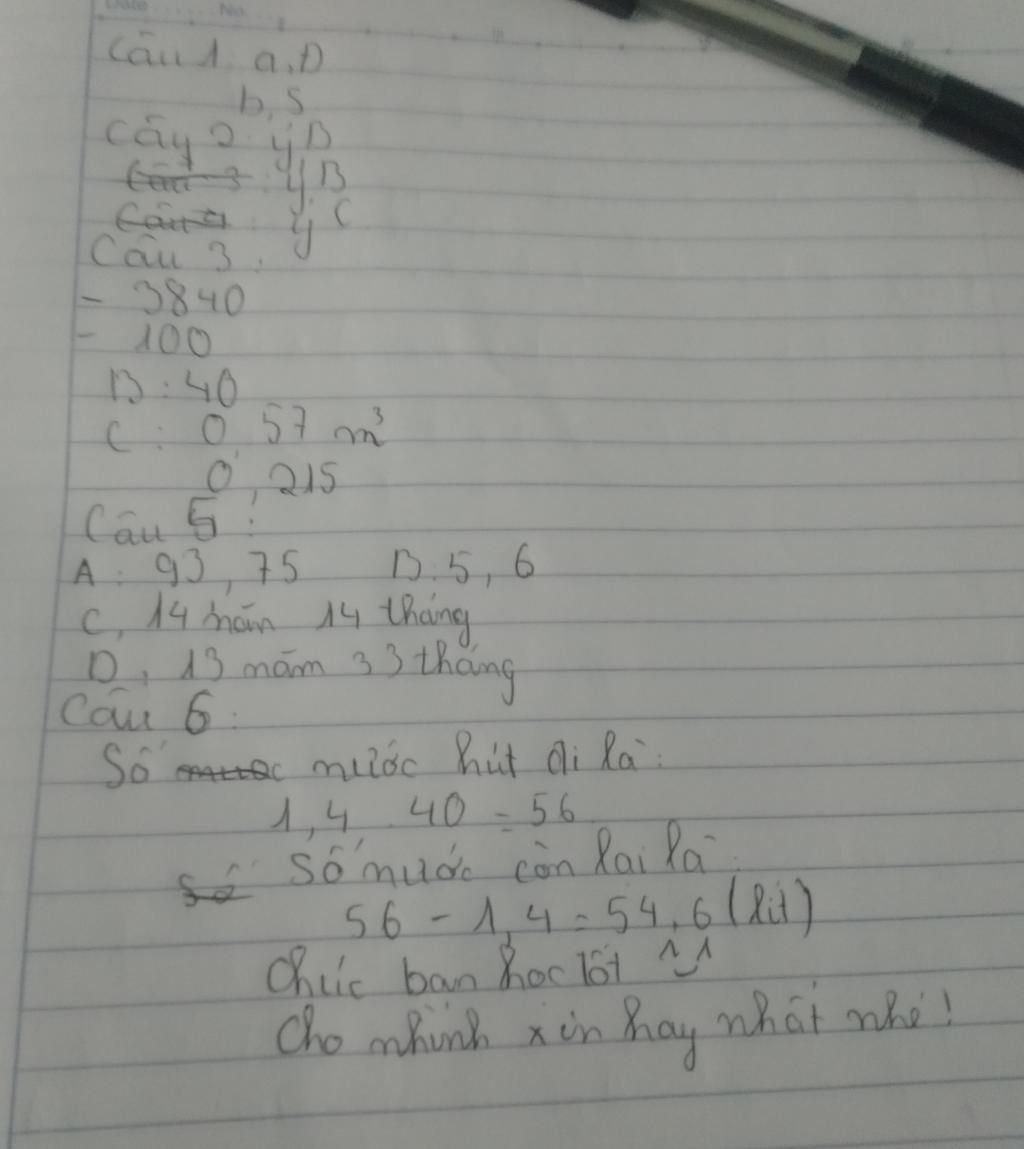 Date No
Câu 1 a, D
b, S
Cây 2 : ý B
Câu 3 : ý B
Câu 4 : ý C
Câu 3 :
- 3840
- 100
B : 40
C : 0,57 m³
0,215
Câu 5 :
A : 93,75 B : 5,6
C, 14 năm 14 tháng
D, 13 năm 33 tháng
Câu 6 :
Số nước hút đi là :
1,4 . 40 = 56
Số Số nước còn lai là :
56 - 1,4 = 54,6 (lít)
Chúc ban hoc tốt ^‿^
Cho mhình xin hay nhất nhé!